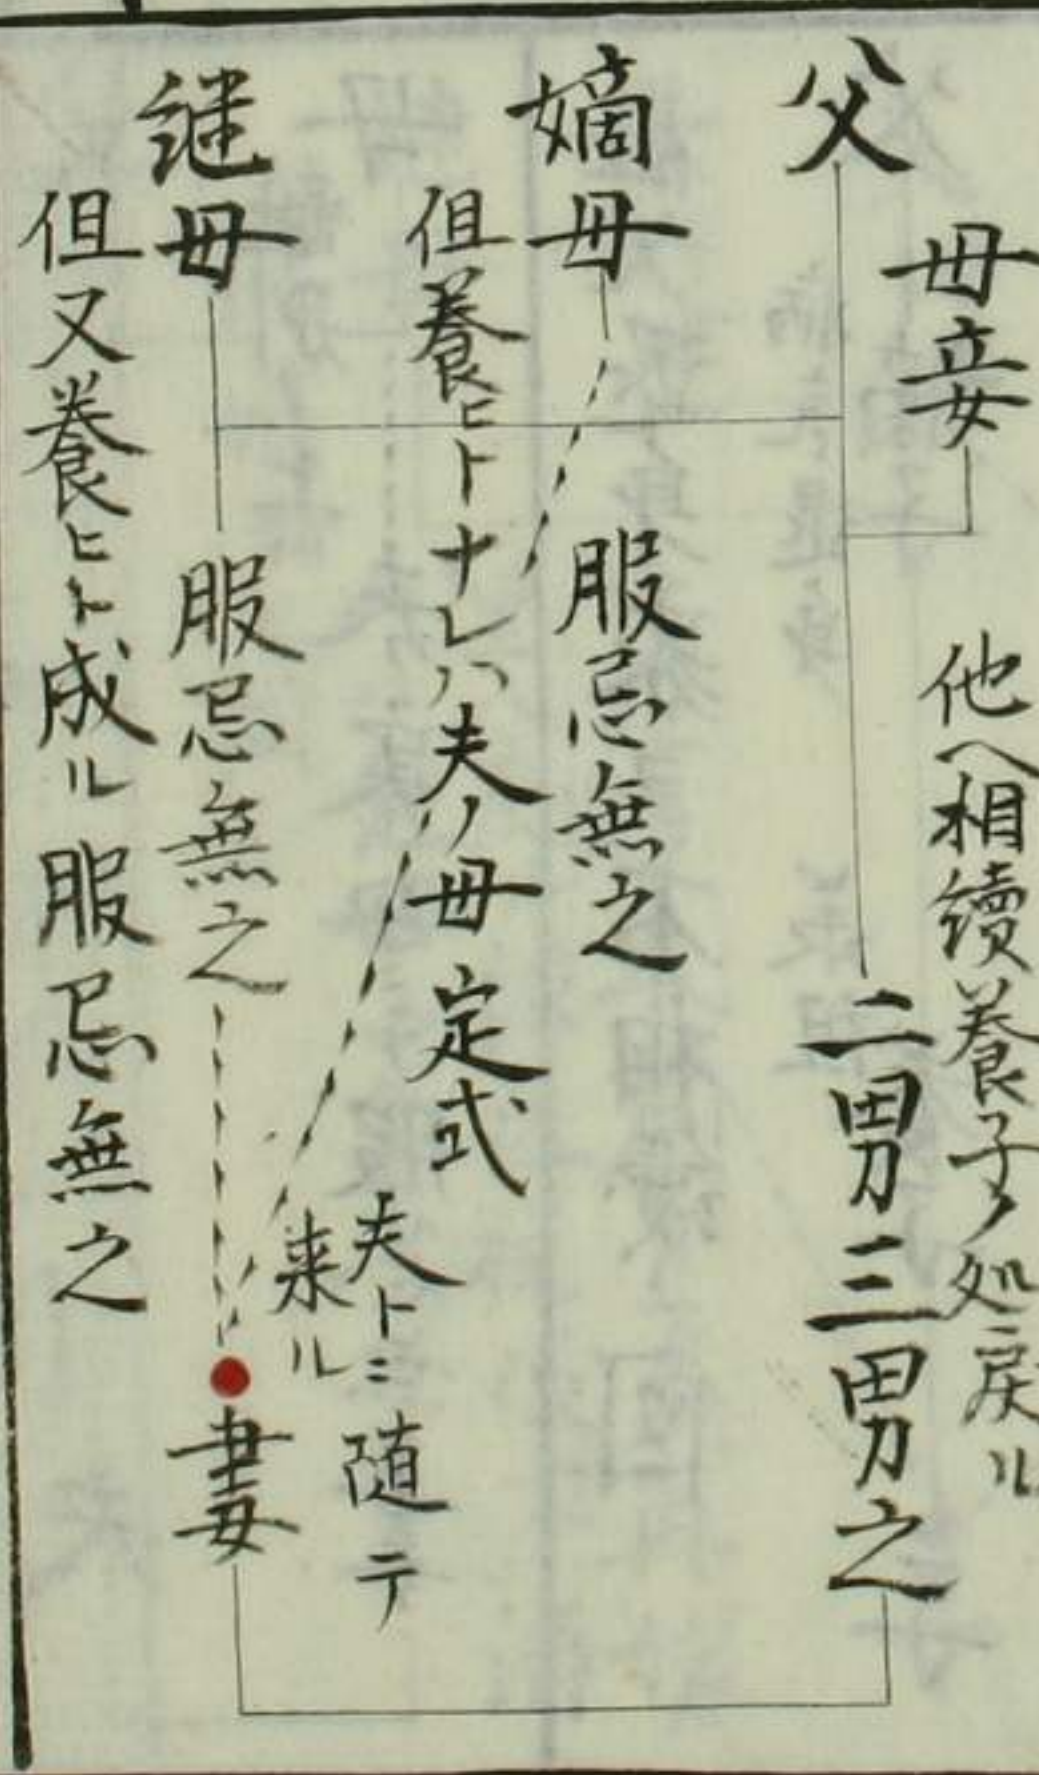 母妾
他ヘ相續養子ノ処戻ル
父
二男三男之
嫡母
服忌無之
但養ヒトナレハ夫ノ母定式
夫トニ随テ
来ル
継母
服忌無之
妻
但又養ヒト成ル服忌無之